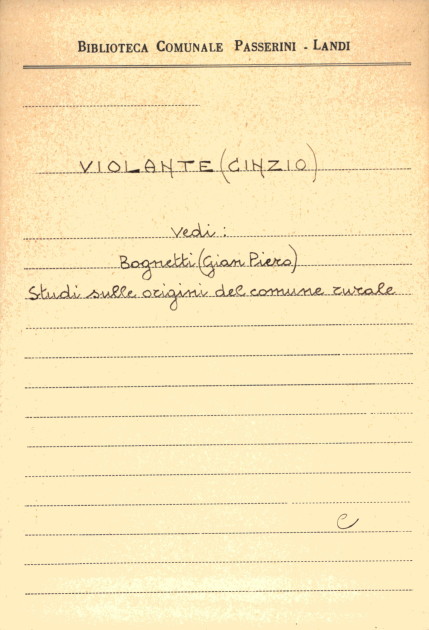 BIBLIOTECA COMUNALE PASSERINI - LANDI
VIOLANTE (CINZIO)
Vedi :
Bognetti (Gian Piero)
Studi sulle origini del comune rurale
C